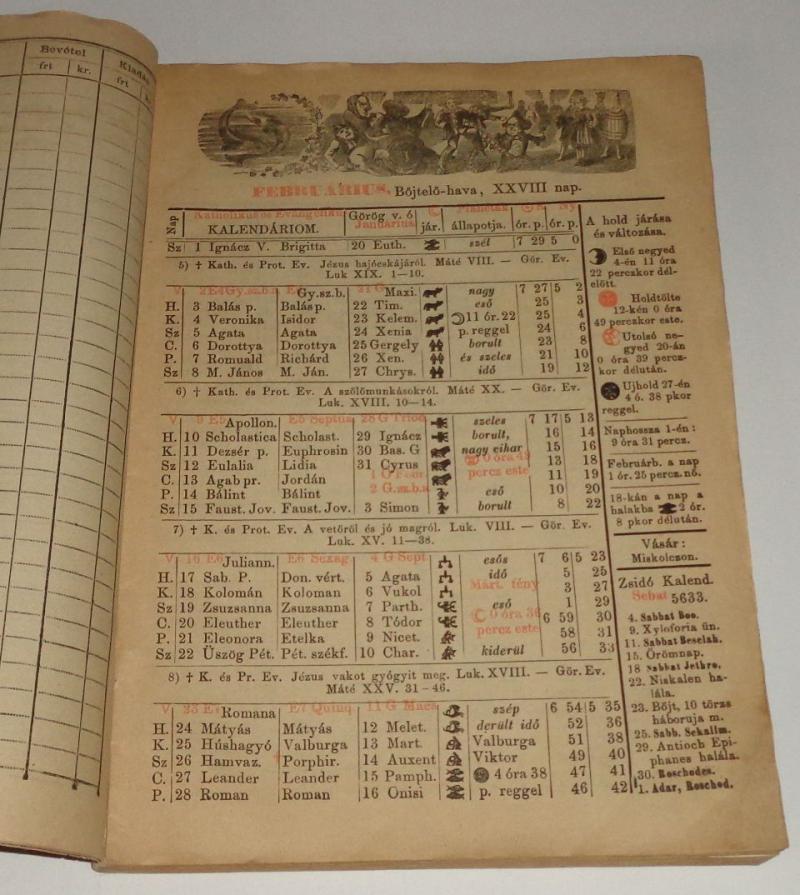 Bevétel
Kiadás
frt kr. frt
FEBRUÁRIUS. Bőjtelő-hava, XXVIII nap.
Nap Katholikusok Evangeliku KALENDÁRIOM. Görög v. ó Januárius jár. Planéták állapotja. ór. p. ór. p.
Sz 1 Ignácz V. Brigitta 20 Euth. szél 7 29 5 0
5) † Kath. és Prot. Ev. Jézus hajócskájáról. Máté VIII. — Gör. Ev.
Luk XIX. 1—10.
V. 2 Gy.sz.b. Gy.sz.b 21 G Maxi. nagy 7 27 5 2
H. 3 Balás p. Balás p. 22 Tim. eső 25 3
K. 4 Veronika Isidor 23 Kelem. 11 ór. 22 25 4
Sz 5 Agata Agata 24 Xenia p. reggel 24 6
C. 6 Dorottya Dorottya 25 Gergely borult 23 8
P. 7 Romuald Richárd 26 Xen. és szeles 21 10
Sz 8 M. János M. Ján. 27 Chrys. idő 19 12
6) † Kath. és Prot. Ev. A szölőmunkásokról. Máté XX. — Gör. Ev.
Luk. XVIII. 10—14.
V. 9 E5 Apollon. E5 Septua 28 G Triod szeles 7 17 5 13
H. 10 Scholastica Scholast. 29 Ignácz borult, 16 14
K. 11 Dezsér p. Euphrosin 30 Bas. G nagy vihar 15 16
Sz 12 Eulalia Lidia 31 Cyrus 0 óra 49 13 18
C. 13 Agab pr. Jordán 1 G percz este 11 19
P. 14 Bálint Bálint 2 G.sz.b.a eső 10 20
Sz 15 Faust. Jov. Faust. Jov. 3 Simon borult 8 22
7) † K. és Prot. Ev. A vetöről és jó magról. Luk. VIII. — Gör. Ev.
Luk. XV. 11—38.
V. 16 E6 Juliann. E6 Sexag. 4 G Sept. esős 7 6 5 23
H. 17 Sab. P. Don. vért. 5 Agata idő 5 25
K. 18 Kolomán Koloman 6 Vukol Márt. fény 3 27
Sz 19 Zsuzsanna Zsuzsanna 7 Parth. eső 1 29
C. 20 Eleuther Eleuther 8 Tódor 0 óra 36 6 59 30
P. 21 Eleonora Etelka 9 Nicet. percz este 58 31
Sz 22 Üszög Pét. Pét. székf. 10 Char. kiderül 56 33
8) † K. és Pr. Ev. Jézus vakot gyógyit meg. Luk. XVIII. — Gör. Ev.
Máté XXV. 31-46.
V. 23 E7 Romana E7 Quinq 11 G Maca szép 6 54 5 35
H. 24 Mátyás Mátyás 12 Melet. derült idő 52 36
K. 25 Húshagyó Valburga 13 Mart. Valburga 51 38
Sz 26 Hamvaz. Porphir. 14 Auxent Viktor 49 40
C. 27 Leander Leander 15 Pamph. 4 óra 38 47 41
P. 28 Roman Roman 16 Onisi p. reggel 46 42
A hold járása
és változása.
Első negyed
4-én 11 óra
22 perczkor dél-
előtt.
Holdtölte
12-kén 0 óra
49 perczkor este.
Utolsó ne-
gyed 20-án
0 óra 39 percz-
kor délután.
Ujhold 27-én
4 ó. 38 pkor
reggel.
Naphossza 1-én:
9 óra 31 percz.
Februárb. a nap
1 ór. 25 percz. nő.
18-kán a nap a
halakba 2 ór.
8 pkor délután.
Vásár:
Miskolczon.
Zsidó Kalend.
Sebat 5633.
4. Sabbat Boo.
9. Xyloforia ün.
11. Sabbat Beselah.
15. Örömnap.
18 Sabbat Jethro.
22. Niskalen ha-
lála.
23. Bőjt, 10 törzs
háboruja m.
25. Sabb. Sekalim.
29. Antioch Epi-
phanes halála.
30. Roschodes.
1. Adar, Roschod.